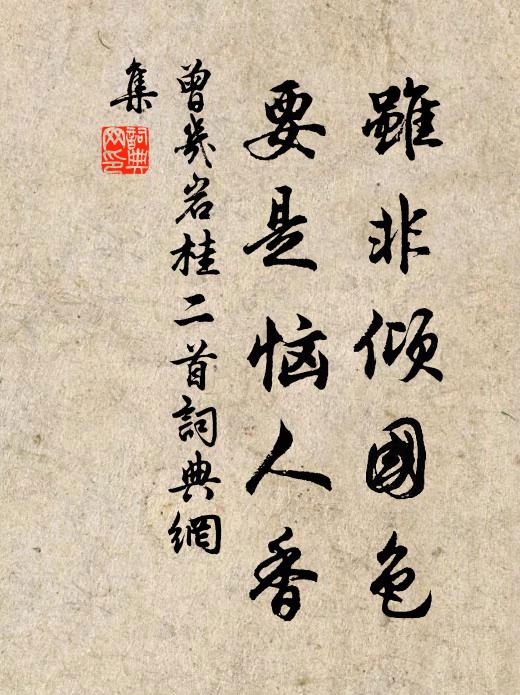 雖非傾國色
要是恼人香
曾幾岩桂二首詞典網
集
詞典
网印